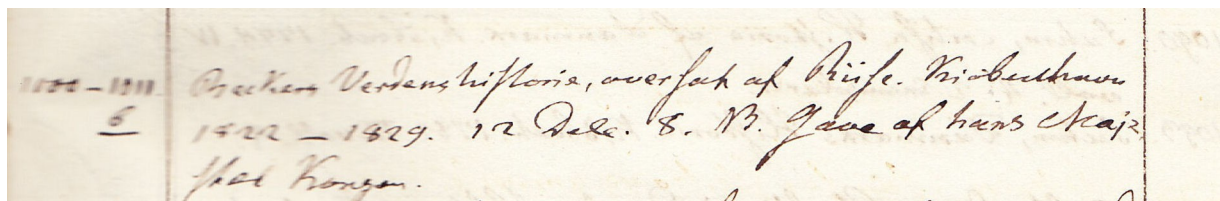 1100 – 1111. Beckers Verdenshistorie, oversat af Riise. Kiöbenhavn
6 1822 – 1829. 12 Dele. 8. NB. Gave af hans Maje
stæt Kongen.